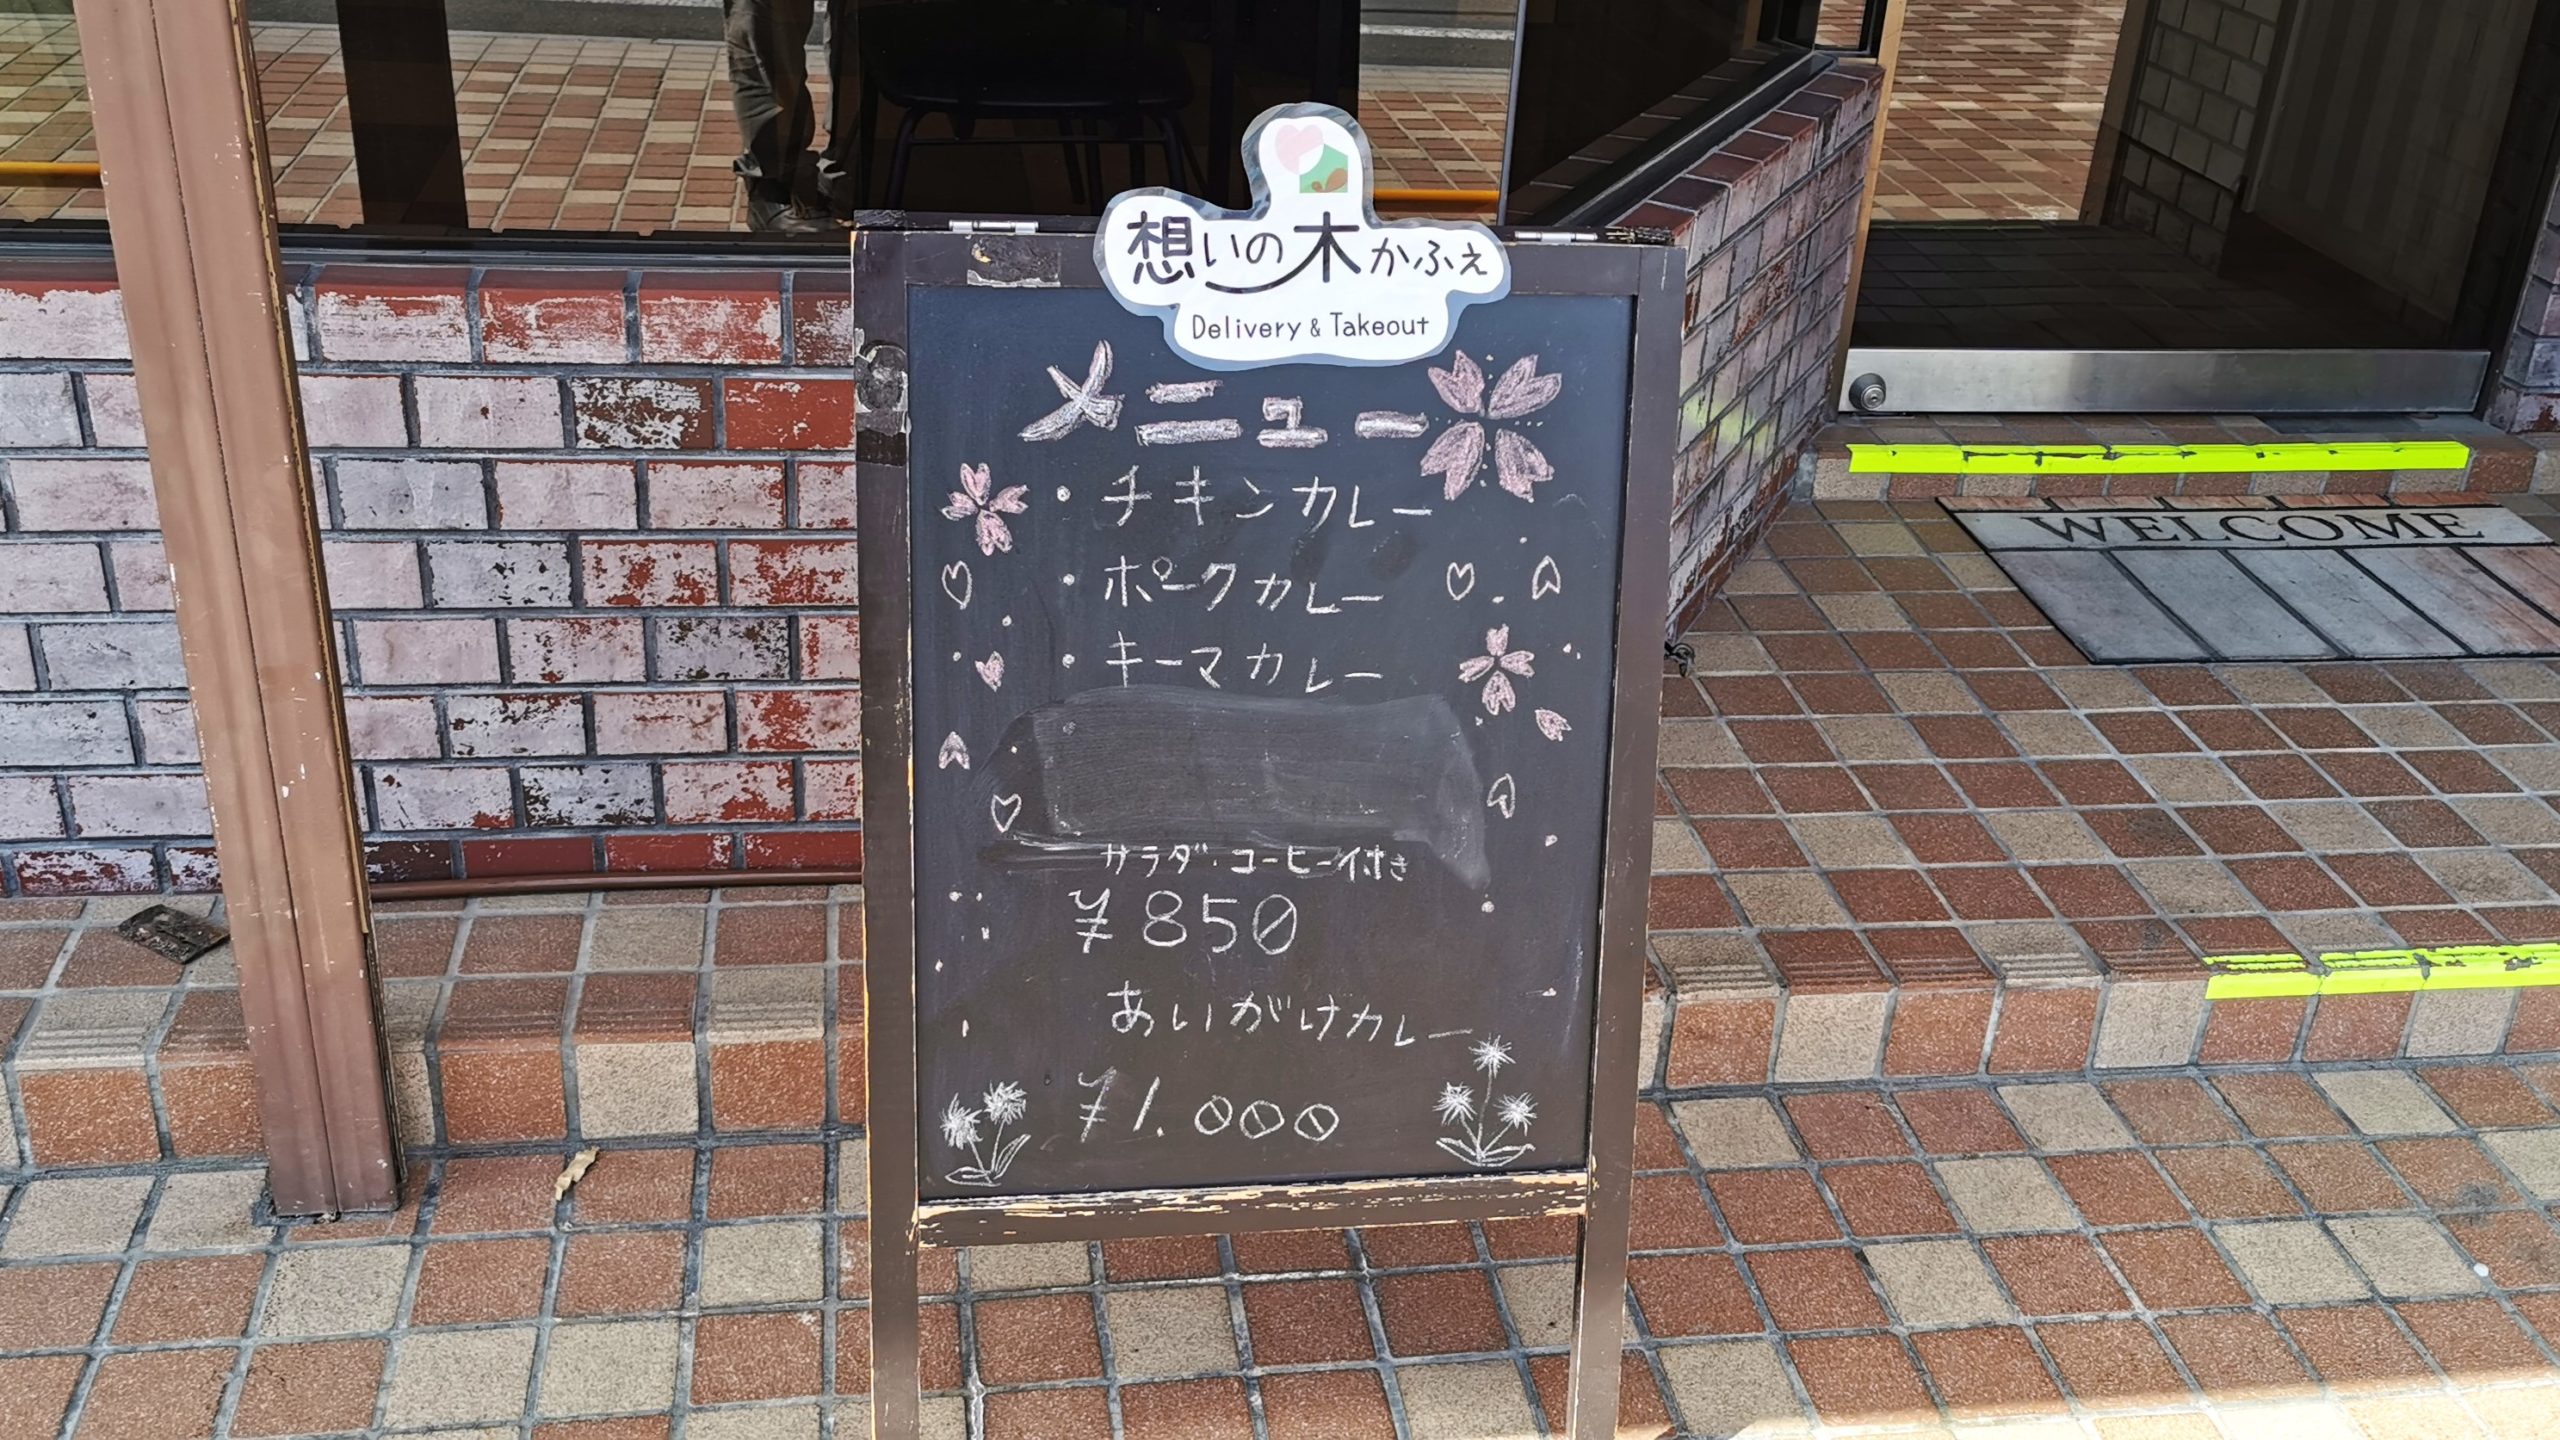 想いの木かふぇ
Delivery & Takeout
メニュー
・チキンカレー
・ポークカレー
・キーマカレー
サラダ・コーヒー付き
¥850
あいがけカレー
¥1.000
WELCOME